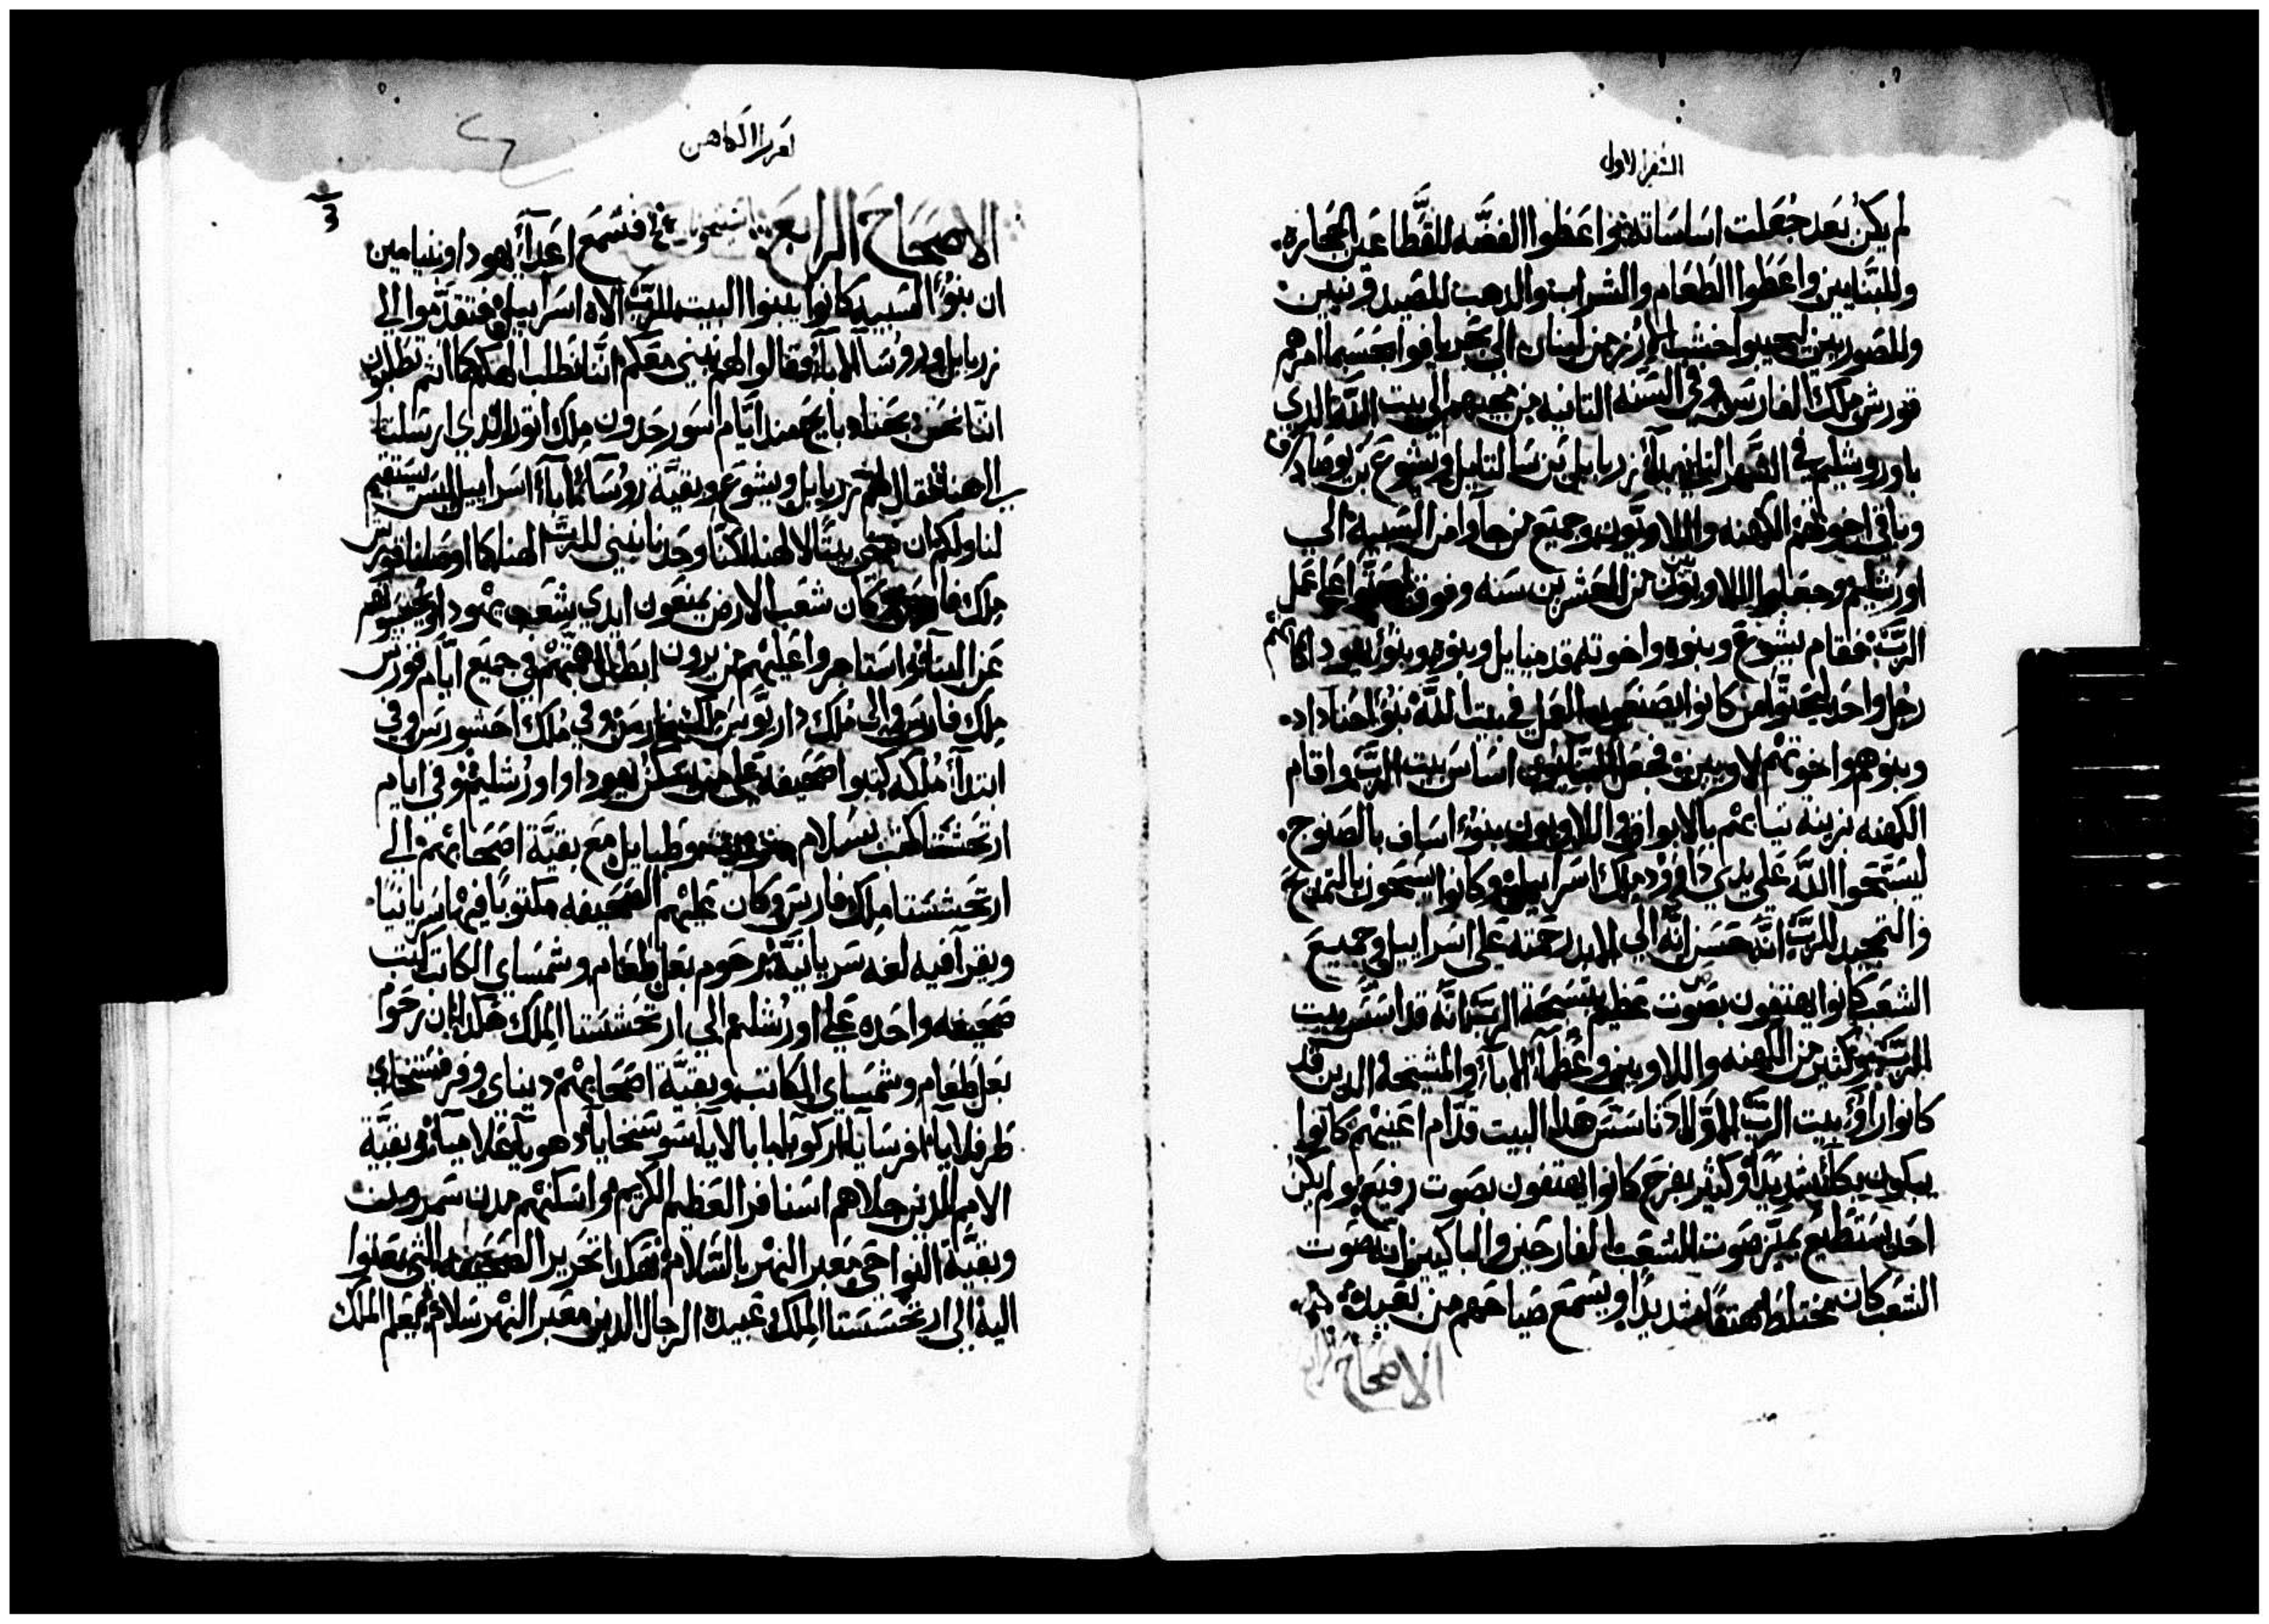 السفر الاول
لم يكن بعد جعلت اساساته واعطوا الفضه للقطاعين الحجاره
وللبنايين واعطوا الطعام والشراب والدهب للصيدونيين
وللصوريين ليجيبوا خشب الارز من لبنان الي بحر يافو بحسبما امرهم
قورش ملك الفارس وفي السنه التانيه من مجيهم الي بيت الله الدي
باوروشليم في الشهر التاني بدا زربابل بن سالتايل ويشوع بن يوصاداق
وباقي اخوتهم الكهنه واللاويون وجميع من جاوا من السبيه الي
اورشليم وجعلوا اللاويون من العشرين سنه وفوق علي عمل
الرب فقام يشوع وبنوه واخوته قدميايل وبنوه وبنو يهودا كانهم
رجل واحد كانوا يصنعون العمل في بيت الله بنو احناداد
وبنوهم واخوتهم لاويين اساس بيت الرب واقام
الكهنه بزينة تيابهم بالابواق واللاويون بنو اساف بالصنوج
ليسبحوا الله علي يدي داوود ملك اسراييل وكانوا يسبحون بالتمديح
والتمجيد للرب انه حسن انه الي الابد رحمته علي اسراييل وجميع
الشعب كانوا يهتفون بصوت عظيم بتسبحة الرب انه قد اسس بيت
الرب وكثير من الكهنه واللاويين وعظما الابا والمشيخه الدين قد
كانوا راوا بيت الرب الاول لما تاسس هدا البيت قدام اعينهم كانوا
يبكون بكا شديدا وكثير بفرح كانوا يهتفون بصوت رفيع ولم يكن
احد يستطيع يميز صوت الشعب الفارحين والباكين انه صوت
الشعب كان مختلط يهتف شديدا ويسمع صياحهم من بعيد
الاصحاح الرابع
لعزرا الكاهن
الاصحاح الرابع فسمع اعدا يهودا وبنيامين
ان بنو السبيه كانوا يبنوا البيت للرب الاه اسراييل فتقدموا الي
زربابل وروسا الابا وقالوا لهم نبني معكم اننا نطلب الهكم كما انتم تطلبون
اننا نحن دبحنا دبايح مند ايام اسورحدون ملك اتور الدي ارسلنا
الي هنا فقال لهم زربابل ويشوع وبقية روسا ابا اسراييل ليس يستقيم
لنا ولكم ان نبني بيتا لالهنا لكننا وحدنا نبني للرب الهنا كما اوصانا قورش
ملك فارس وكان شعب الارض يمنعون ايدي شعب يهودا ويخيفوهم
عن البنا واستاجروا عليهم مزيرون ابطال همتهم في جميع ايام قورش
ملك فارس والي ملك داريوس ملك فارس وفي ملك احشورس وفي
ابتدا ملكه كتبوا صحيفه علي من يسكن يهودا واورشليم وفي ايام
ارتحششتا كتب بسلام وطبايل مع بقية اصحابهم الي
ارتحششتا ملك فارس وكان عليهم الصحيفه مكتوبا فيها سريانيا
ويقرا فيه لغه سريانيه رحوم بعل طعام وشمساي الكاتب كتب
صحيفه واحده علي اورشليم الي ارتحششتا الملك هكدا من رحوم
بعل طعام وشمساي الكاتب وبقية اصحابهم ديناي وفرفستخاي
طرفلايا افرسايا اركويا بابالايا سوسنخايا دهويا علاميا وبقية
الامم الدين جلاهم اسنافر العظيم الكريم واسكنهم مدن سمرون
وبقية النواحي معبر النهر بالسلام هكدا تحرير الصحيفه التي بعتوا
اليه الي ارتحششتا الملك عبيدك الرجال الدين معبر النهر سلام يعلم الملك